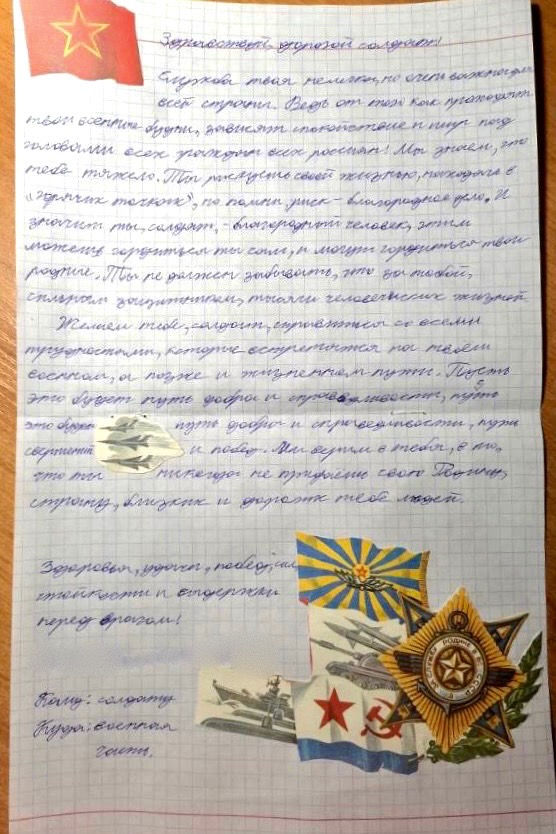 Здравствуй, дорогой солдат!
Служба твоя нелегка, но очень важна для
всей страны. Ведь от того как проходят
твои военные будни, зависят спокойствие и мир над
головами всех граждан всех россиян! Мы знаем, что
тебе тяжело. Ты рискуешь своей жизнью, находясь в
"горячих точках", но помни, риск - благородное дело. И
значит ты, солдат, - благородный человек, этим
можешь гордиться ты сам, и могут гордиться твои
родные. Ты не должен забывать, что за тобой,
сильным защитником, тысячи человеческих жизней
Желаем тебе, солдат, справиться со всеми
трудностями, которые встретятся на твоем
военном, а позже и жизненном пути. Пусть
это будет путь добра и справедливости, путь
это будет путь добра и справедливости, пути
свершений и побед. Мы верим в тебя, в то,
что ты никогда не предаешь свою Родину,
страну, близких и дорогих тебе людей.
Здоровья, удачи, побед, сил
стойкости и выдержки
перед врагом!
Кому: солдату
Куда: военная
часть.
ЗА СЛУЖБУ РОДИНЕ В ВС СССР